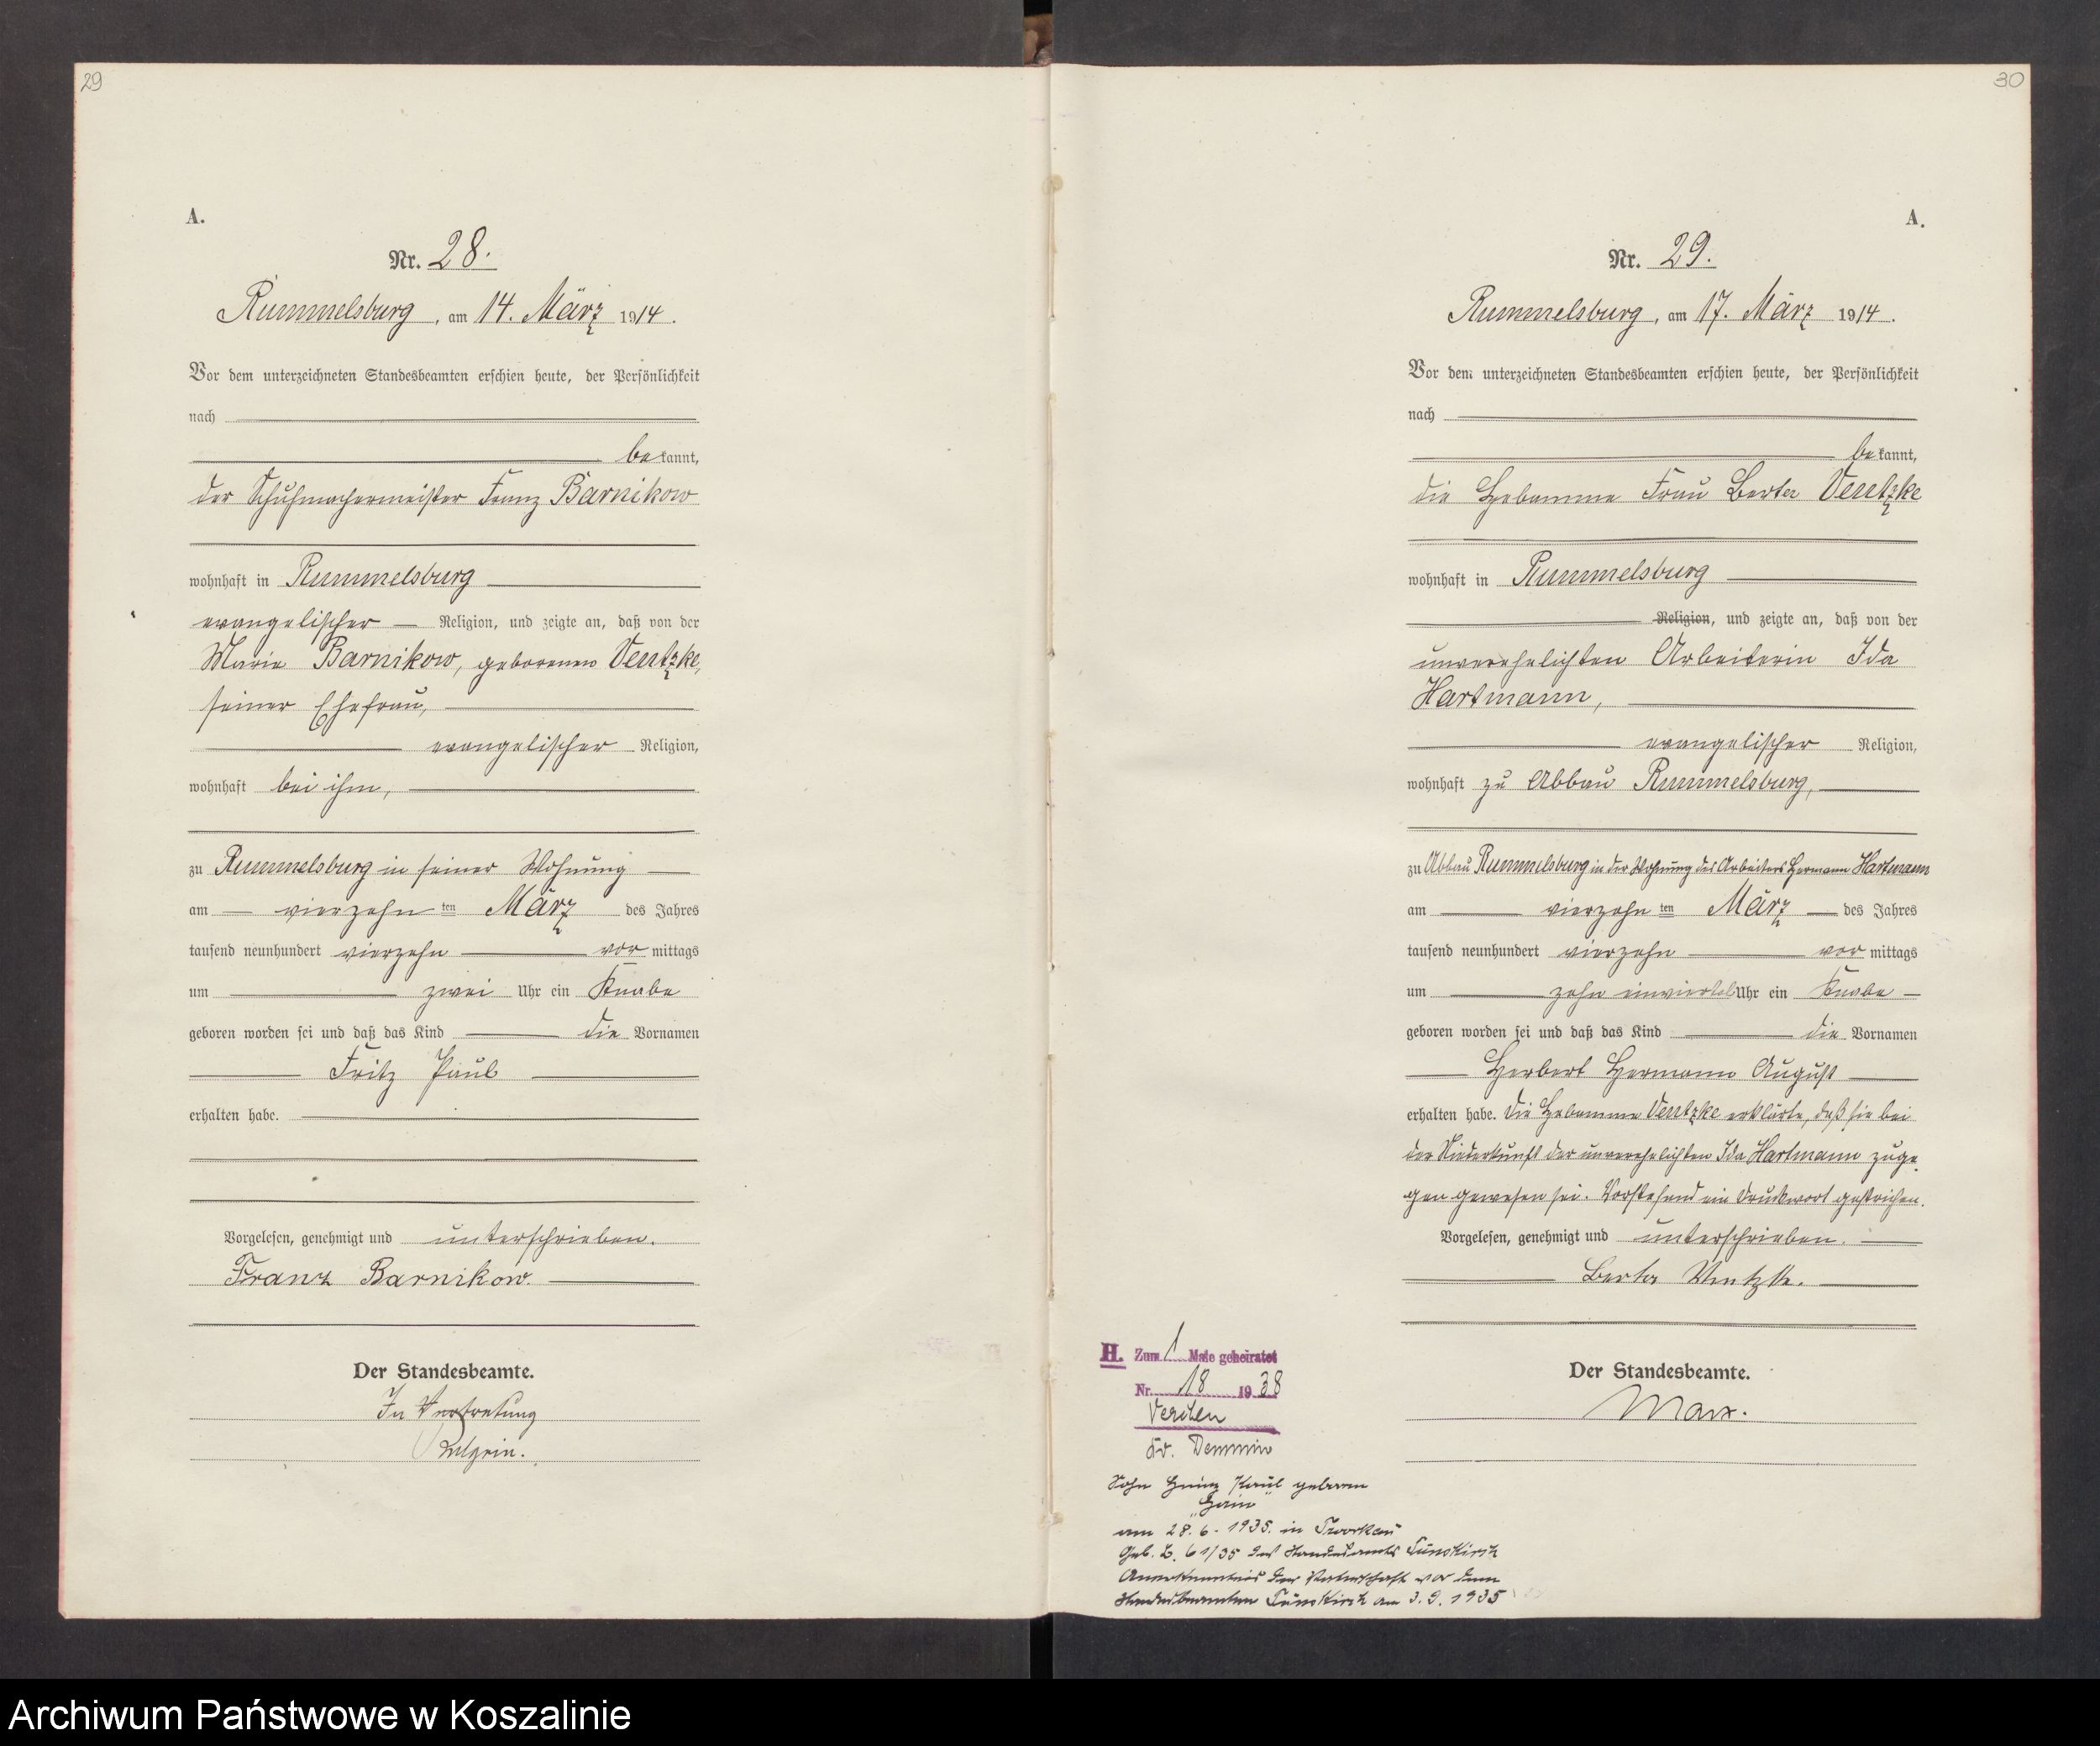 29
A.
Nr. 28.
Rummelsburg, am 14. März 1914.
Vor dem unterzeichneten Standesbeamten erschien heute, der Persönlichkeit
nach
bekannt,
der Schuhmachermeister Franz Barnikow
wohnhaft in Rummelsburg
evangelischer Religion, und zeigte an, daß von der
Marie Barnikow, geborenen Ventzke,
seiner Ehefrau,
evangelischer Religion,
wohnhaft bei ihm,
zu Rummelsburg in seiner Wohnung
am vierzehnten März des Jahres
tausend neunhundert vierzehn vormittags
um zwei Uhr ein Knabe
geboren worden sei und daß das Kind die Vornamen
Fritz Paul
erhalten habe.
Vorgelesen, genehmigt und unterschrieben.
Franz Barnikow.
Der Standesbeamte.
In Vertretung
30
A.
Nr. 29.
Rummelsburg, am 17. März 1914.
Vor dem unterzeichneten Standesbeamten erschien heute, der Persönlichkeit
nach
bekannt,
die Hebamme Frau Berta Ventzke
wohnhaft in Rummelsburg
Religion, und zeigte an, daß von der
unverehelichten Arbeiterin Ida
Hartmann,
evangelischer Religion,
wohnhaft zu Abbau Rummelsburg,
zu Abbau Rummelsburg in der Wohnung des Arbeiters Hermann Hartmann
am vierzehnten März des Jahres
tausend neunhundert vierzehn vormittags
um zehn einviertel Uhr ein Knabe
geboren worden sei und daß das Kind die Vornamen
Herbert Hermann August
erhalten habe. Die Hebamme Ventzke erklärte, daß sie bei
der Niederkunft der unverehelichten Ida Hartmann zuge-
gen gewesen sei. Vorstehend ein Druckwort gestrichen.
Vorgelesen, genehmigt und unterschrieben.
Berta Ventzke.
Der Standesbeamte.
Marx.
H. Zum 1 Male geheiratet
Nr. 18 1938
Verchen
Kr. Demmin
Sohn Heinz Paul geboren
am 28.6.1935. in Tworkau
Geb. B. 61/35 des Standesamts Tunskirch
Anerkenntnis der Vaterschaft vor dem
Standesbeamten Tunskirch am 3.9.1935
Archiwum Państwowe w Koszalinie